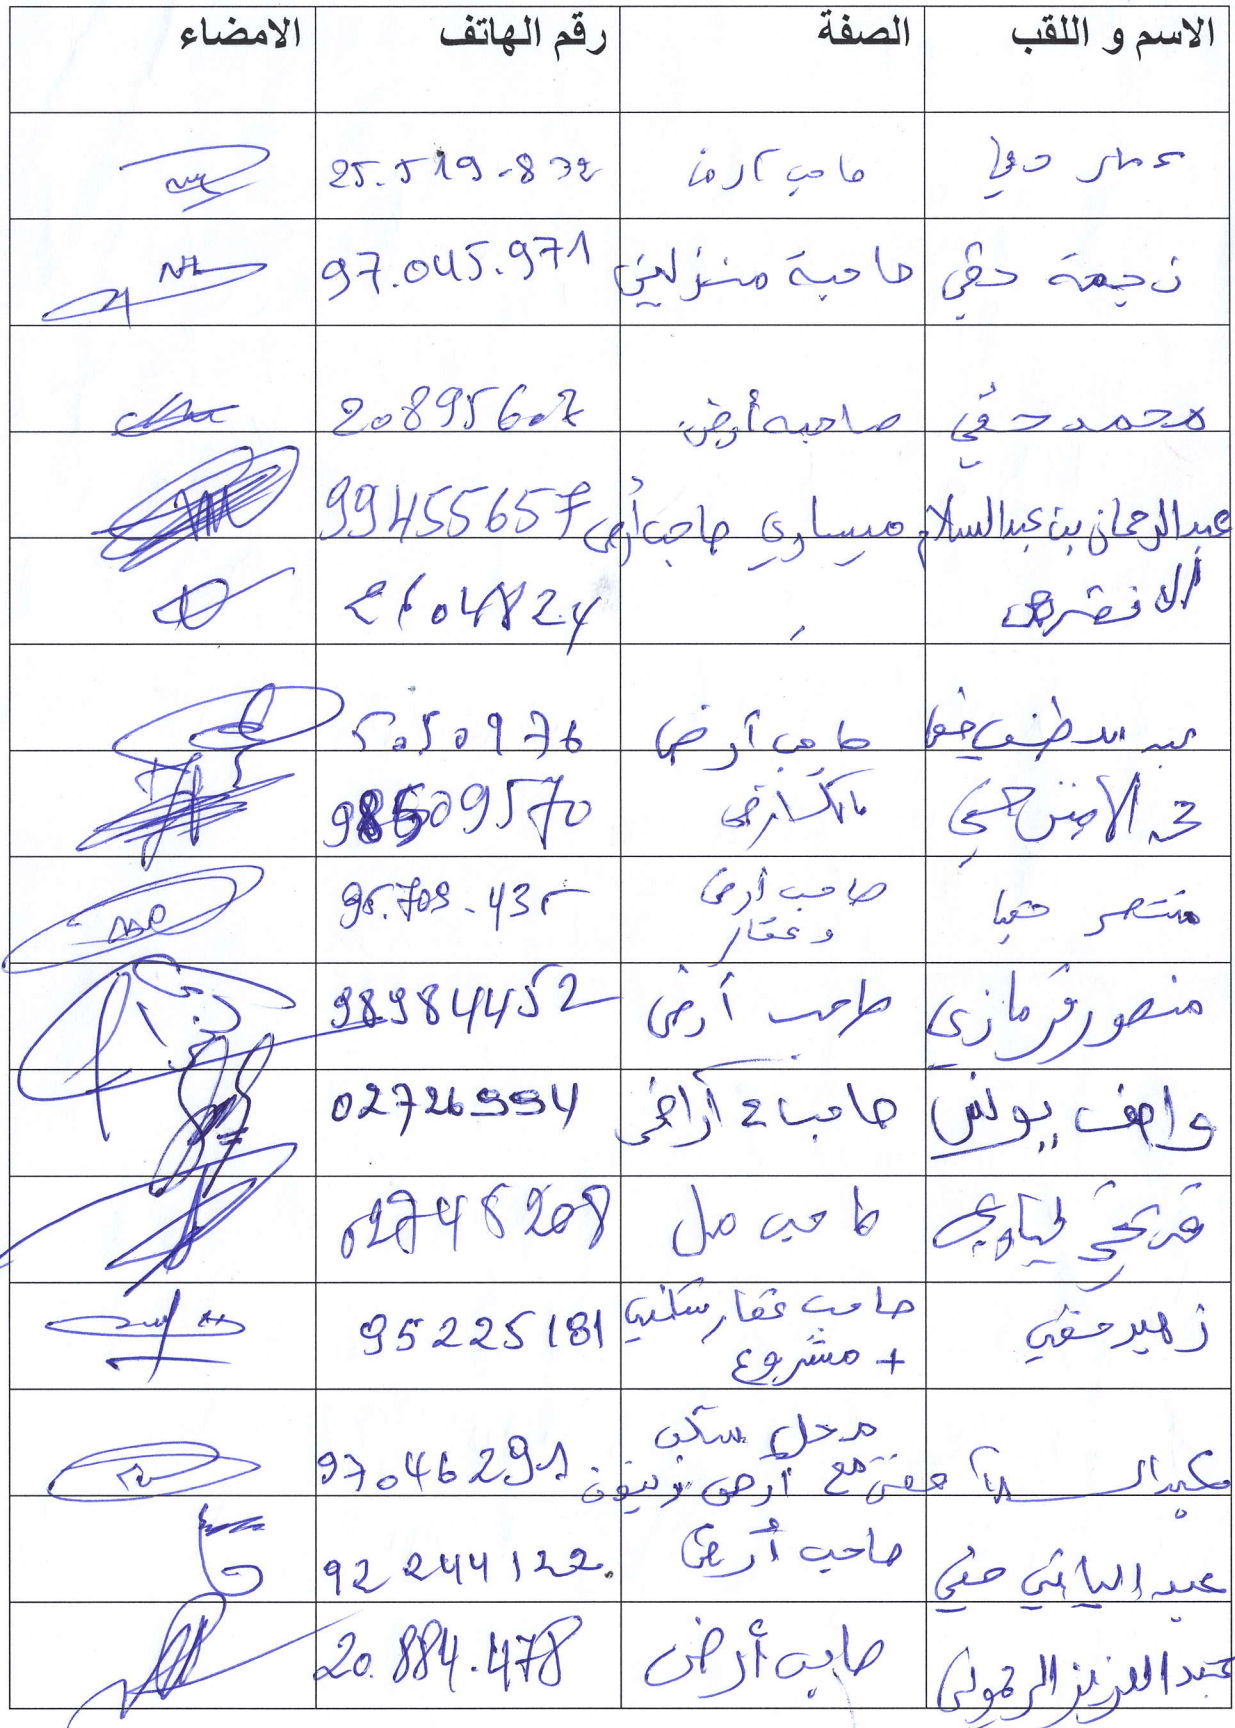 الاسم و اللقب الصفة رقم الهاتف الامضاء
عمار حقي صاحب أرض 25.519.832
نجمة حقي صاحبة منزلين 97.045.971
محمد حقي صاحب أرض 20895607
عبد الرحمان بن عبد السلام ميساوي صاحب أرض 99455657
عبد اللطيف حقي صاحب أرض 50509976
محمد الأمين حقي مالك أرض 98509570
منتصر حقي صاحب أرض 95.709.435
وعقار
منصور قرمازي صاحب أرض 98984452
واصف يونس صاحب 2 أراضي 02726994
صاحب محل 02745208
زهير حقي صاحب عقار سكني 95225181
+ مشروع
محل سكن
عبد السلام حقي مع أرض زيتون 97046291
عبد الباقي حقي صاحب أرض 92244122
عبد العزيز صاحب أرض 20.884.478